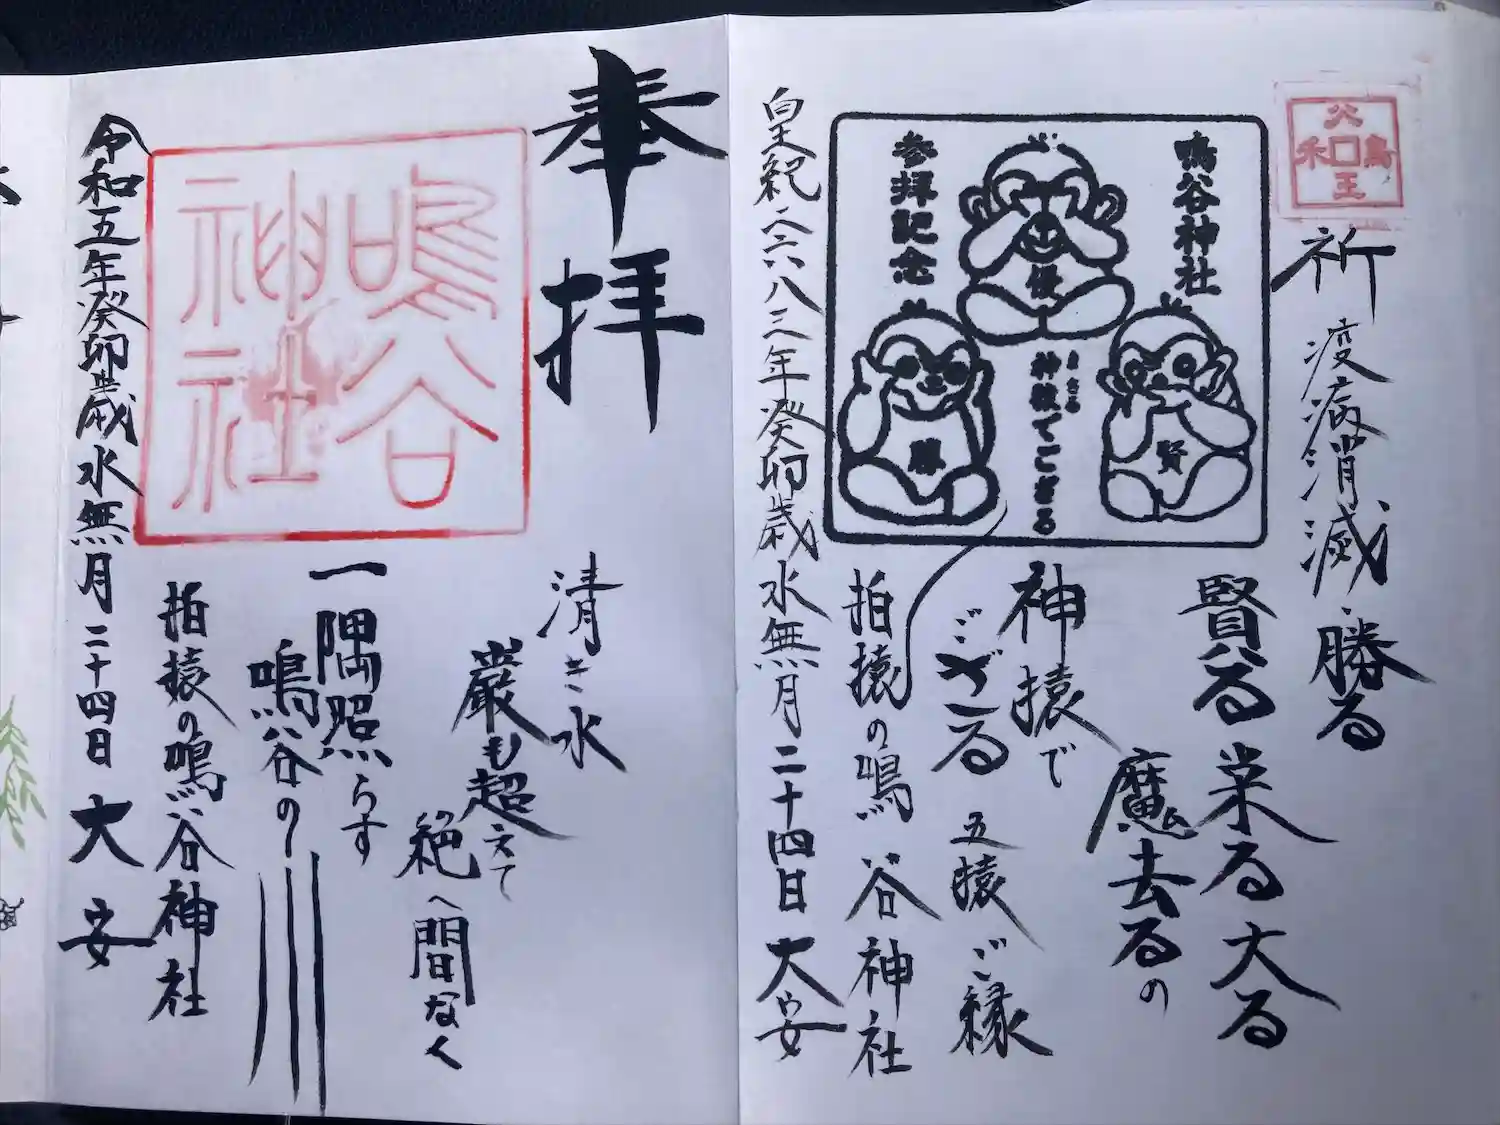 祈
疫病消滅・勝る
賢る 栄る 大る
魔去るの
神猿で
ござる 五猿ご縁
拍猿の鳴谷神社
皇紀二六八三年癸卯歳水無月二十四日 大安
鳴谷神社
優
神猿でござる
まさる
賢
勝
参拝記念
奉拝
清き水
巌も超えて
絶へ間なく
一隅照らす
鳴谷の川
拍猿の鳴谷神社
令和五年癸卯歳水無月二十四日 大安
鳴谷
神社